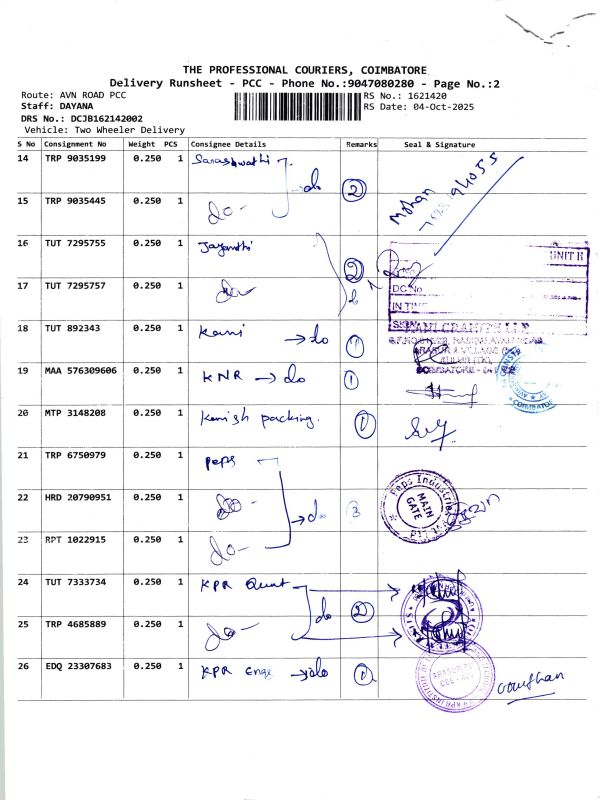 THE PROFESSIONAL COURIERS, COIMBATORE
Delivery Runsheet - PCC - Phone No.:9047080280 - Page No.:2
Route: AVN ROAD PCC
RS No.: 1621420
Staff: DAYANA
RS Date: 04-Oct-2025
DRS No.: DCJB162142002
Vehicle: Two Wheeler Delivery
S No Consignment No Weight PCS Consignee Details Remarks Seal & Signature
14 TRP 9035199 0.250 1 Saraswathi do 2 Mohan
15 TRP 9035445 0.250 1 do-
16 TUT 7295755 0.250 1 Jayanthi 2 UNIT II
17 TUT 7295757 0.250 1 do DC No
IN TIME
18 TUT 892343 0.250 1 Kani → do 1 SIGN
KANI GRANITS LLP
COIMBATORE
19 MAA 576309606 0.250 1 KNR → do 1
COIMBATORE
20 MTP 3148208 0.250 1 Kanish packing. 1
21 TRP 6750979 0.250 1 peps
22 HRD 20790951 0.250 1 do- → do 3 Peps Industries MAIN GATE
23 RPT 1022915 0.250 1 do-
24 TUT 7333734 0.250 1 KPR do 2
25 TRP 4685889 0.250 1 do-
26 EDQ 23307683 0.250 1 KPR Engg → do 1 KPR